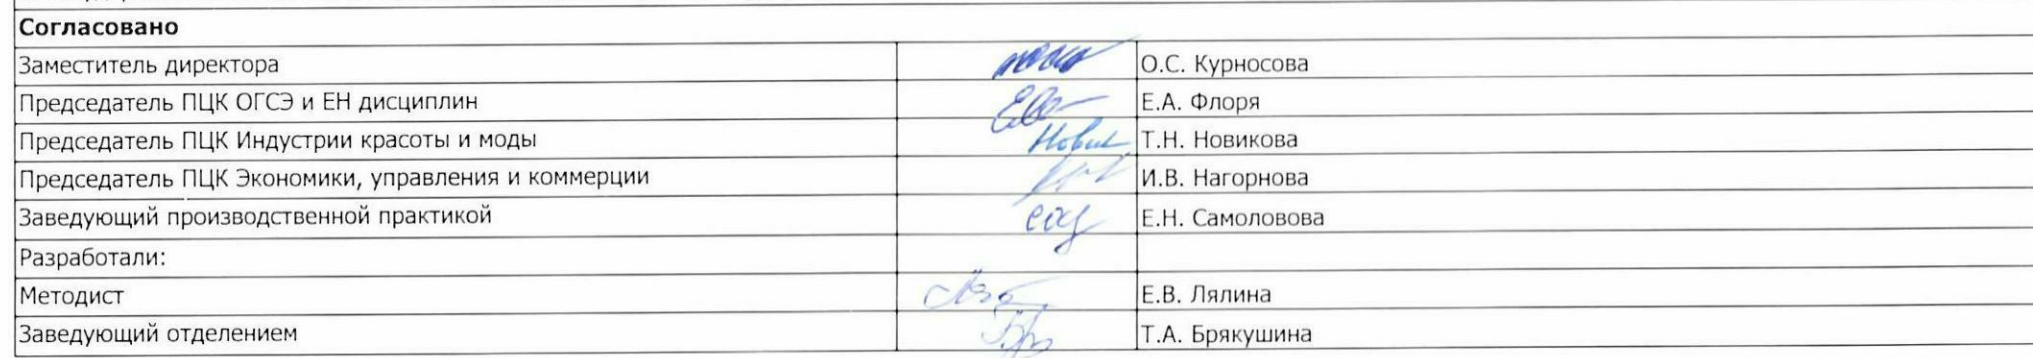 Согласовано
Заместитель директора О.С. Курносова
Председатель ПЦК ОГСЭ и ЕН дисциплин Е.А. Флоря
Председатель ПЦК Индустрии красоты и моды Т.Н. Новикова
Председатель ПЦК Экономики, управления и коммерции И.В. Нагорнова
Заведующий производственной практикой Е.Н. Самоловова
Разработали:
Методист Е.В. Лялина
Заведующий отделением Т.А. Брякушина